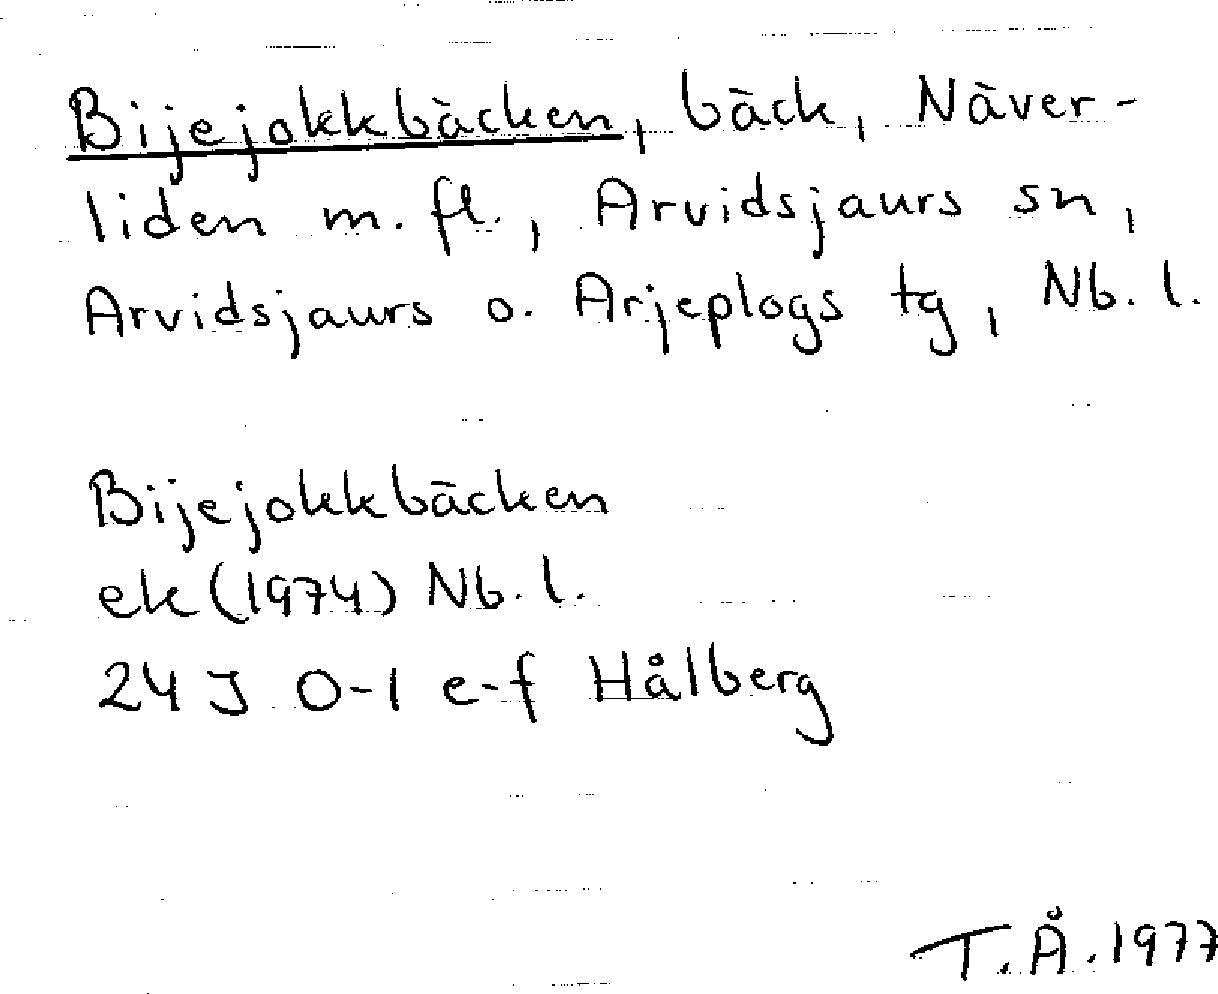 Bijejokkbäcken, bäck, Näver-
liden m. fl., Arvidsjaurs sn,
Arvidsjaurs o. Arjeplogs tg, Nb. l.
Bijejokkbäcken
ek (1974) Nb. l.
24 J 0-1 e-f Hålberg
T. Å. 1977